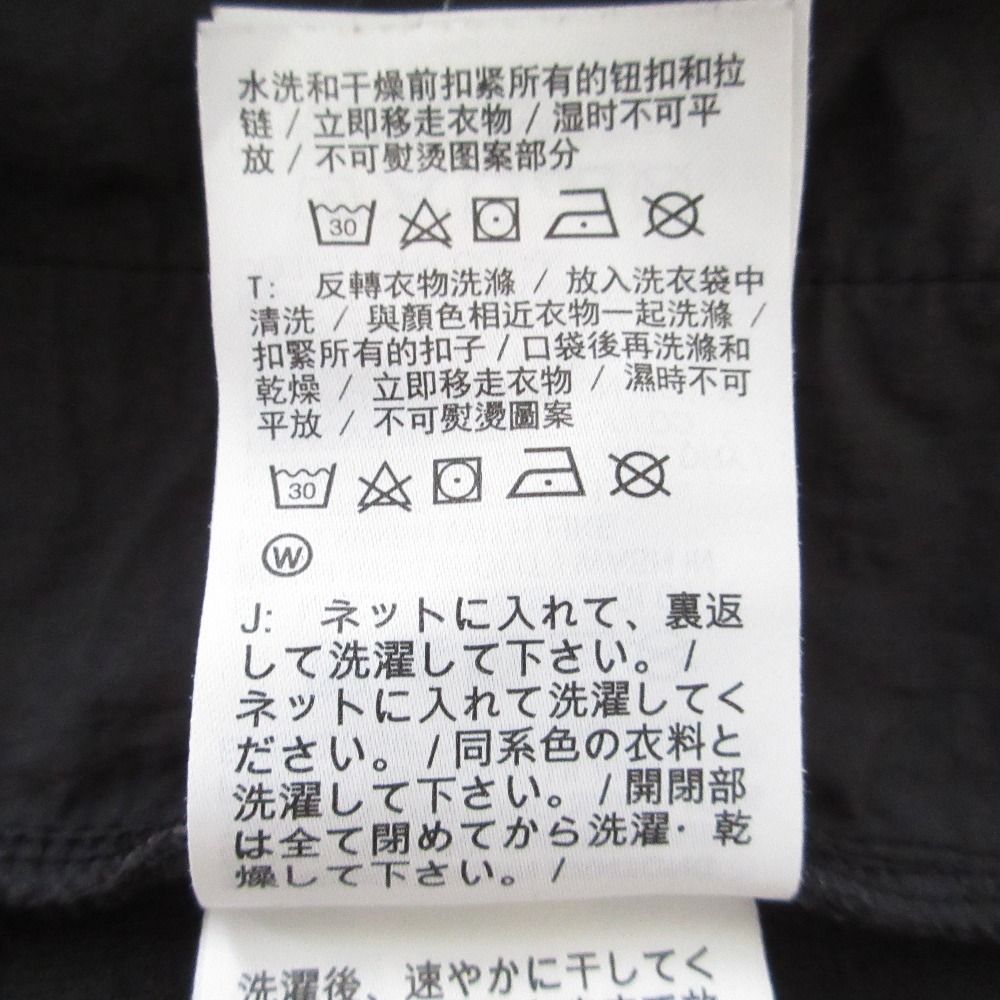 水洗和干燥前扣紧所有的钮扣和拉
链 / 立即移走衣物 / 湿时不可平
放 / 不可熨烫图案部分
30
T: 反轉衣物洗滌 / 放入洗衣袋中
清洗 / 與顏色相近衣物一起洗滌 /
扣緊所有的扣子 / 口袋後再洗滌和
乾燥 / 立即移走衣物 / 濕時不可
平放 / 不可熨燙圖案
30
W
J: ネットに入れて、裏返
して洗濯して下さい。 /
ネットに入れて洗濯してく
ださい。 /同系色の衣料と
洗濯して下さい。 /開閉部
は全て閉めてから洗濯・乾
燥して下さい。 /
洗濯後、速やかに干してく